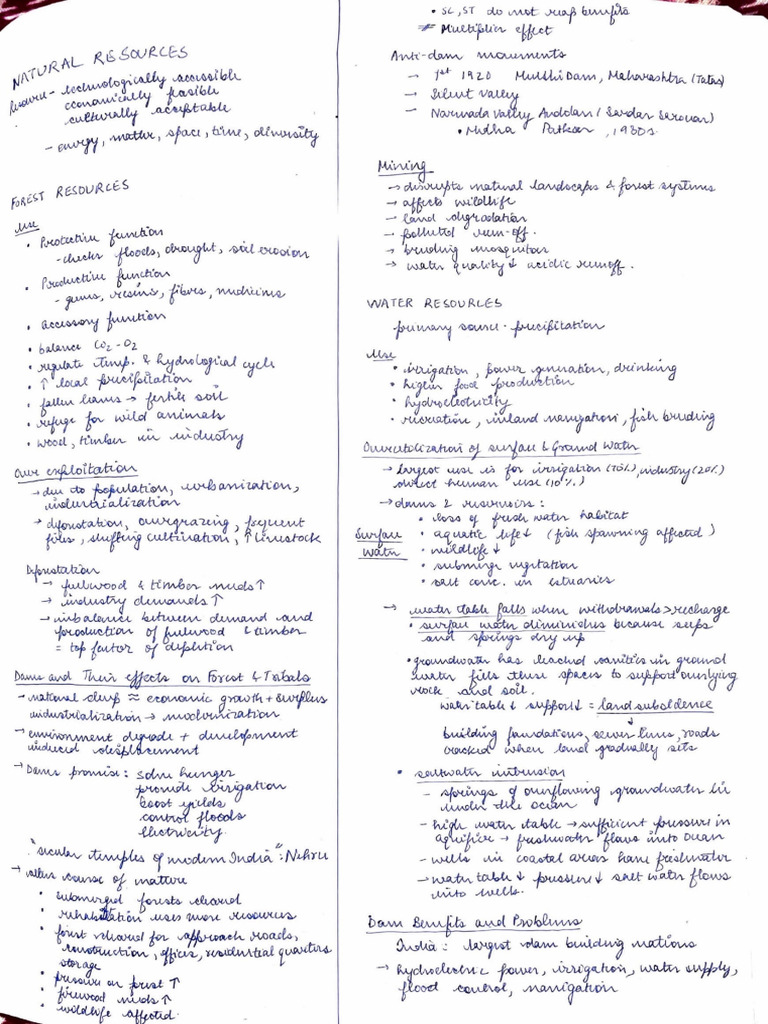 NATURAL RESOURCES
Resource - technologically accessible
economically fasible
culturally acceptable
- energy, matter, space, time, diversity
FOREST RESOURCES
Use
• Protective function
- checks floods, drought, soil erosion
• Productive function
- gums, resins, fibres, medicines
• Accessory function
• balance CO2-O2
• regulate temp. & hydrological cycle
• ↑ local precipitation
• fallen leaves → fertile soil
• refuge for wild animals
• wood, timber in industry
Over exploitation
→ due to population, urbanization,
industrialization
→ deforestation, overgrazing, frequent
fires, shifting cultivation, ↑ livestock
Deforestation
→ fuelwood & timber needs ↑
→ industry demands ↑
→ imbalance between demand and
production of fuelwood & timber
= top factor of depletion
Dams and Their effects on Forest & Tribals
→ national devp ≈ economic growth + surplus
industrialization → modernization
→ environment degrade + development
induced displacement
→ Dams promise: solve hunger
provide irrigation
boost yields
control floods
electricity
"secular temples of modern India": Nehru
→ alters course of nature
• submerged forests cleared
• rehabilitation uses more resources
• forest cleared for approach roads,
construction, offices, residential quarters
storage
• pressure on forest ↑
• firewood needs ↑
• wildlife affected
• SC, ST do not reap benefits
Multiplier effect
Anti-dam movements
- 1st 1920 Mulshi Dam, Maharashtra (Tatas)
- Silent Valley
- Narmada Valley Andolan (Sardar Sarovar)
• Medha Patkar, 1980s
Mining
→ disrupts natural landscape & forest systems
→ affects wildlife
→ land degradation
→ polluted run-off.
→ breeding mosquitos
→ water quality ↓ acidic runoff.
WATER RESOURCES
primary source - precipitation
Use
• irrigation, power generation, drinking
• higher food production
• hydroelectricity
• recreation, inland navigation, fish breeding
Overutilization of surface & Ground Water
→ largest use is for irrigation (70%), industry (20%)
direct human use (10%)
→ dams & reservoirs:
• loss of fresh water habitat
Surface
water
• aquatic life ↓ (fish spawning affected)
• wildlife ↓
• submerge vegetation
• salt conc. in estuaries
→ water table falls when withdrawals > recharge
• surface water diminishes because seeps
and springs dry up
• groundwater has leached cavities in ground
water fills these spaces to support overlying
rock and soil.
water table ↓ support ↓ = land subsidence
↓
building foundations, sewer lines, roads
cracked when land gradually sets
• saltwater intrusion
- springs of outflowing groundwater lie
under the ocean
- high water table → sufficient pressure in
aquifier → freshwater flows into ocean
- wells in coastal areas have freshwater
→ water table ↓ pressure ↓ salt water flows
into wells.
Dam Benefits and Problems
India: largest dam building nations
→ hydroelectric power, irrigation, water supply,
flood control, navigation